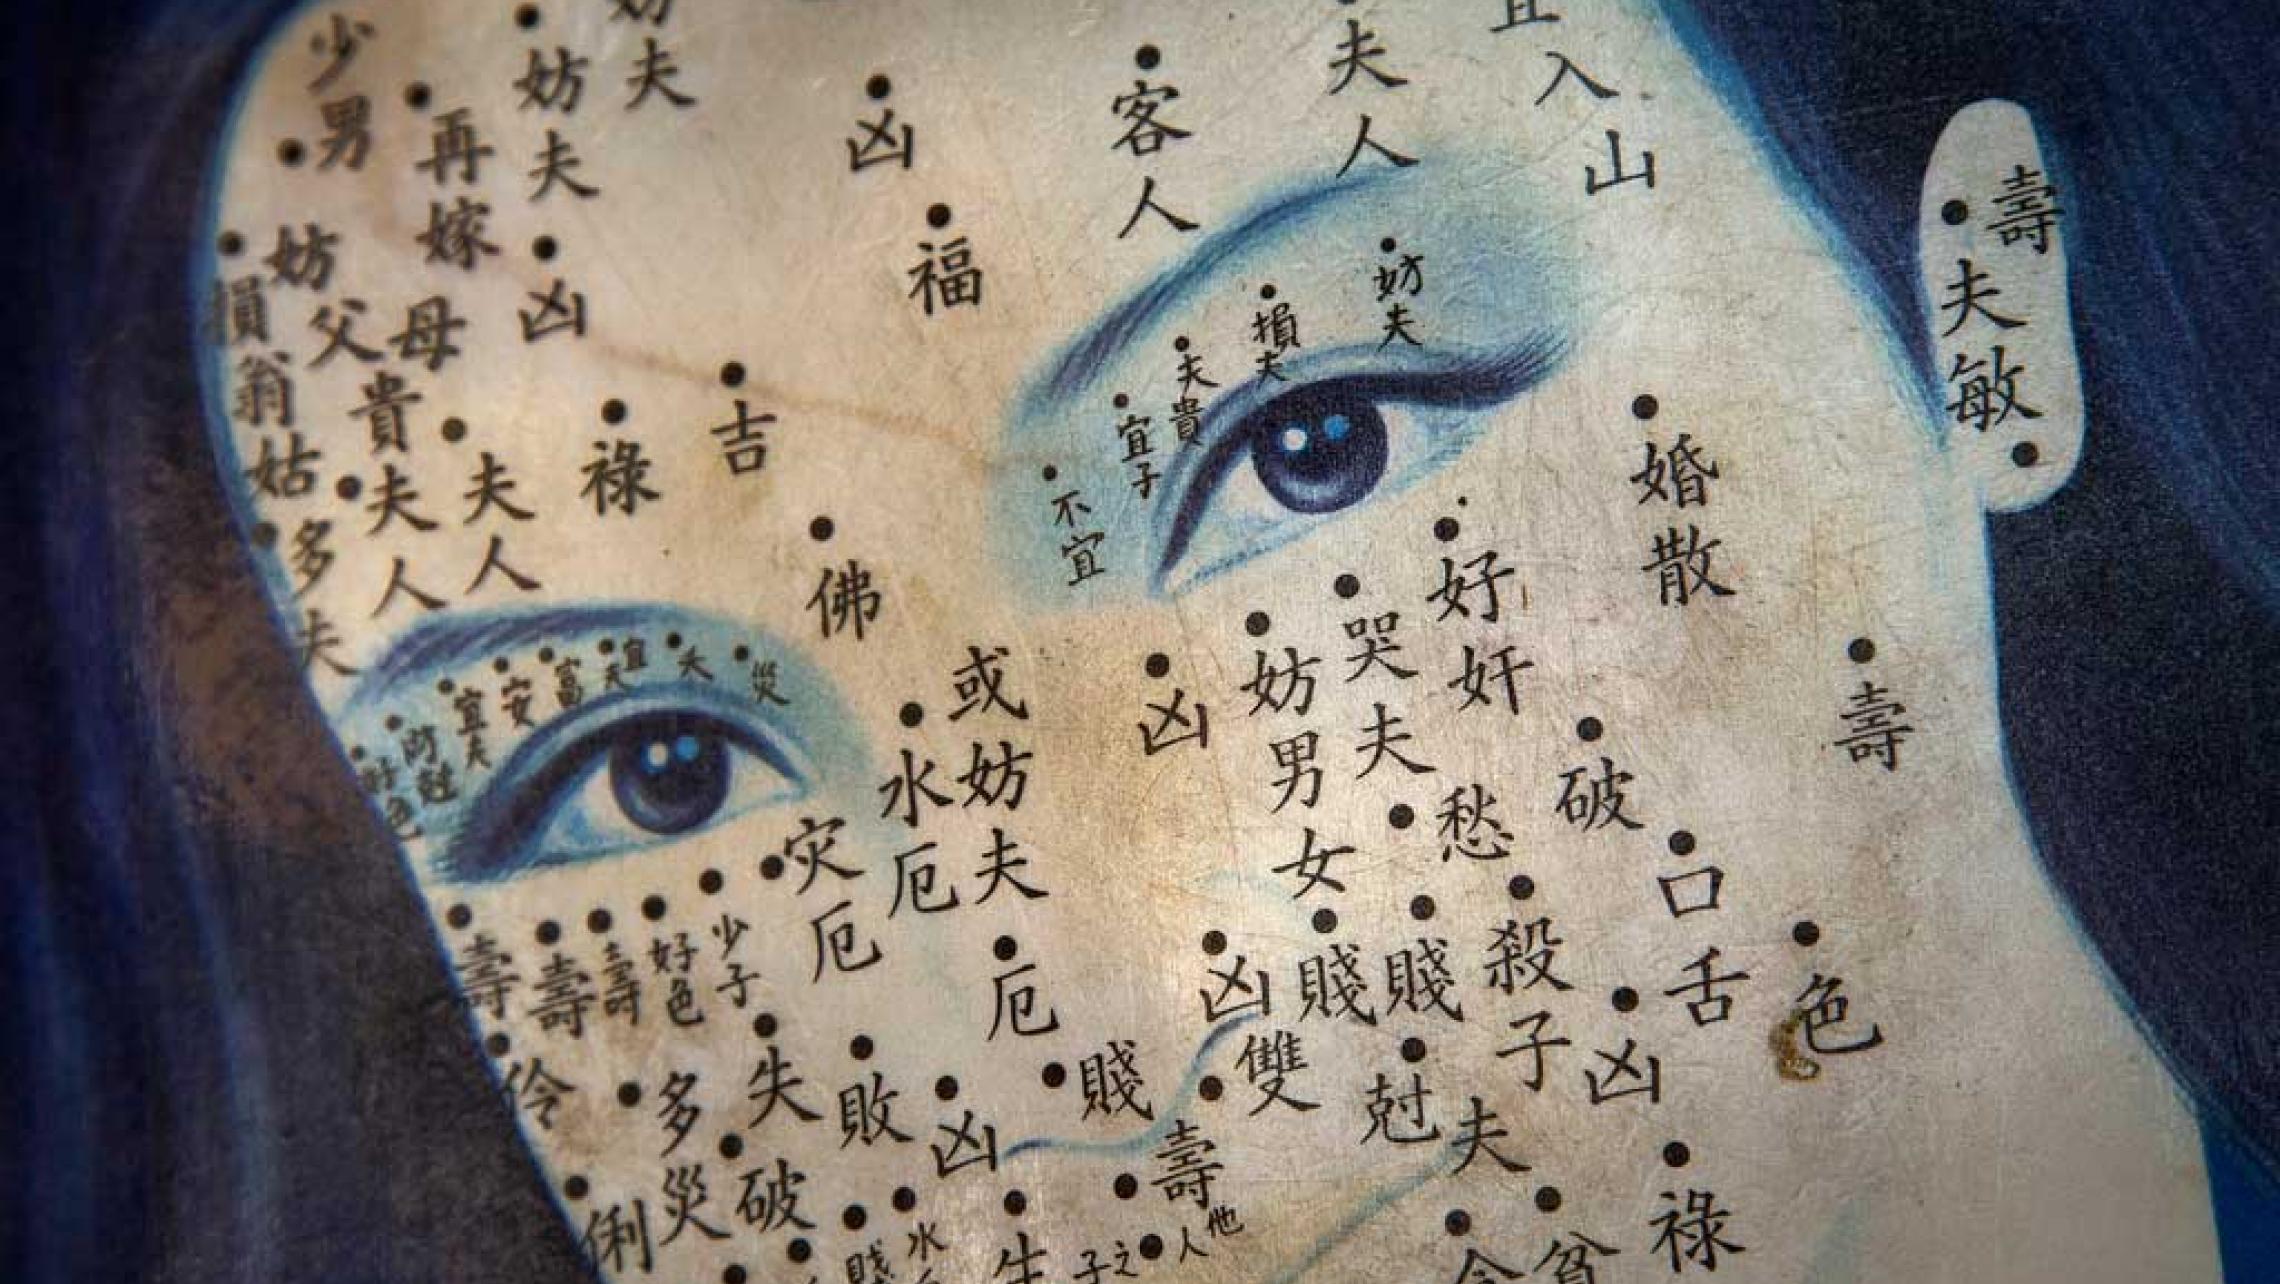 少男
妨夫
妨夫
再嫁
凶
客人
夫人
宜入山
福
壽
夫敏
妨父母
損翁姑
凶
貴夫人
夫人
祿
吉
多夫
佛
妨夫
損夫
夫貴
宜子
不宜
婚散
好奸
哭夫
妨男女
凶
或妨夫
水厄
災
夭
宜夫
富
安
宜夫
好色
灾厄
厄
愁
破
壽
口舌
殺子
賤
賤
凶
凶
色
壽
壽
壽
好色
少子
伶俐
多災
失
破
敗
凶
賤
雙
壽
尅夫
祿
貧
他人之子
賤
水